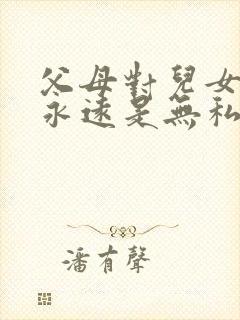 父母對兒女
永遠是無私
潘有聲